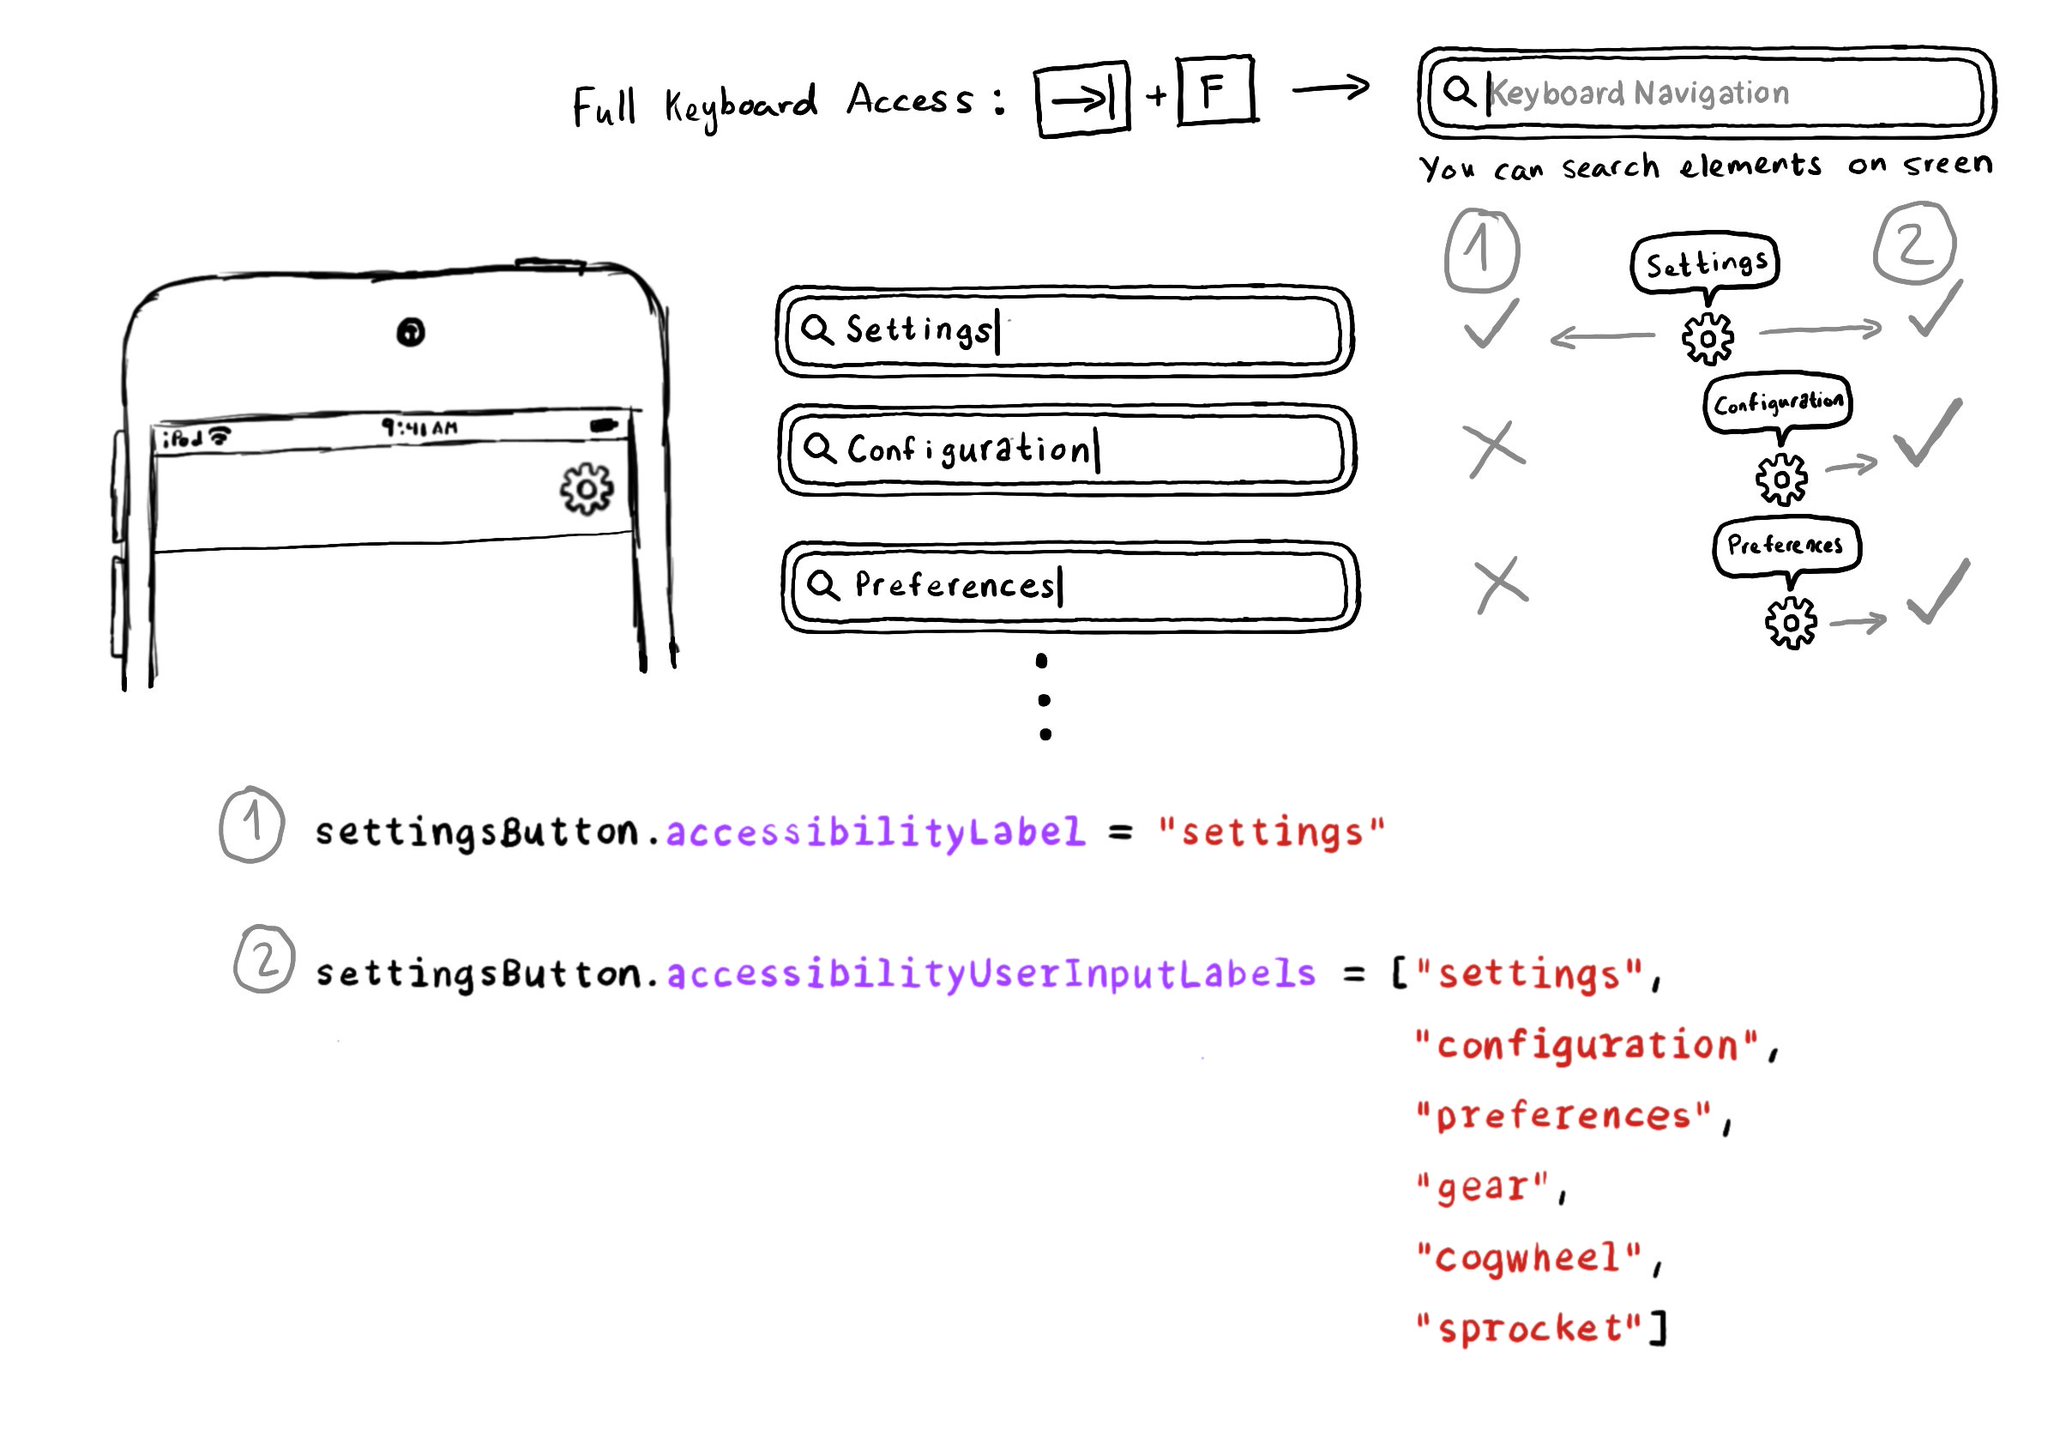 Full Keyboard Access: →| + F → Keyboard Navigation
You can search elements on sreen
1 Settings 2
iPod 9:41 AM
Settings
Configuration
Preferences
Configuration
Preferences
1 settingsButton.accessibilityLabel = "settings"
2 settingsButton.accessibilityUserInputLabels = ["settings",
"configuration",
"preferences",
"gear",
"cogwheel",
"sprocket"]